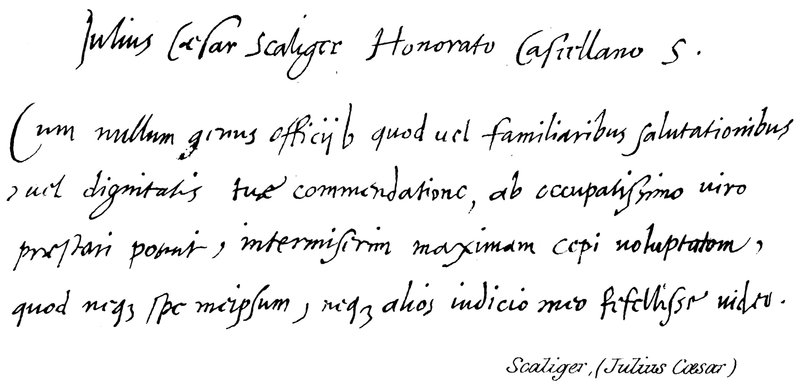 Julius Cæsar Scaliger Honorato Castellano S.
Cum nullum genus officij quod uel familiaribus salutationibus
, uel dignitatis tuæ commendatione, ab occupatissimo uiro
præstari , intermiserim maximam cepi uoluptatem,
quod neqꝫ spe meipsum, neqꝫ alios iudicio meo fefellisse uideo.
Scaliger, (Julius Cæsar)